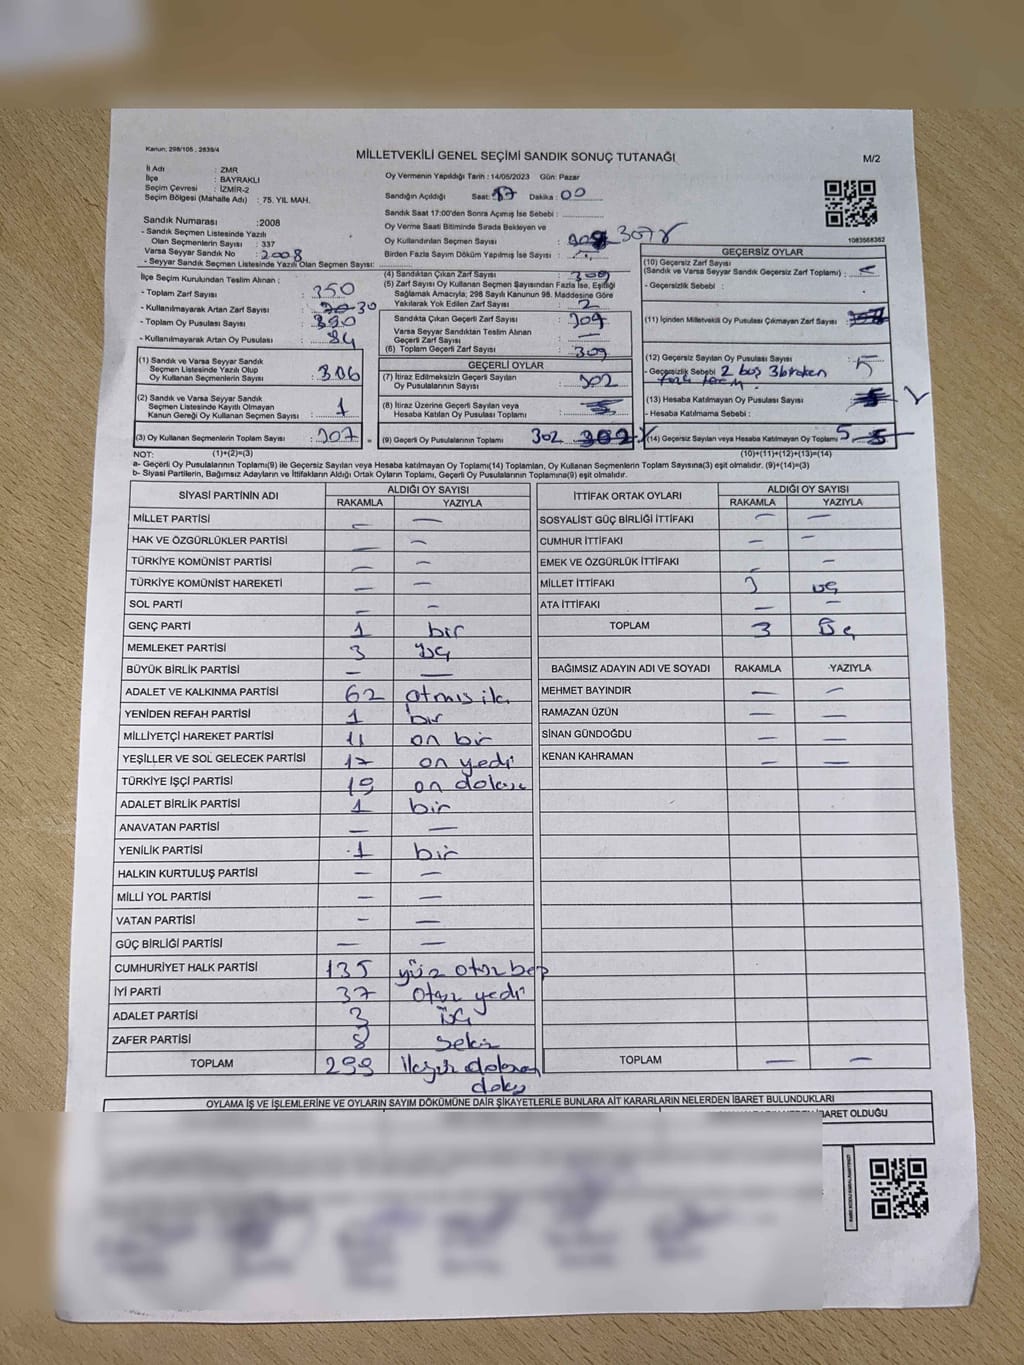 Kanun: 298/105 ; 2839/4
MİLLETVEKİLİ GENEL SEÇİMİ SANDIK SONUÇ TUTANAĞI
M/2
İl Adı : İZMİR
İlçe : BAYRAKLI
Seçim Çevresi : İZMİR-2
Seçim Bölgesi (Mahalle Adı) : 75. YIL MAH.
Sandık Numarası : 2008
- Sandık Seçmen Listesinde Yazılı
Olan Seçmenlerin Sayısı : 337
Varsa Seyyar Sandık No : 2008
- Seyyar Sandık Seçmen Listesinde Yazılı Olan Seçmen Sayısı:
Oy Vermenin Yapıldığı Tarih : 14/05/2023 Gün: Pazar
Sandığın Açıldığı Saat: 17 Dakika : 00
Sandık Saat 17:00'den Sonra Açımış İse Sebebi :
Oy Verme Saati Bitiminde Sırada Bekleyen ve
Oy Kullandırılan Seçmen Sayısı : 307
Birden Fazla Sayım Döküm Yapılmış İse Sayısı :
1083568362
İlçe Seçim Kurulundan Teslim Alınan :
- Toplam Zarf Sayısı : 350
- Kullanılmayarak Artan Zarf Sayısı : 30
- Toplam Oy Pusulası Sayısı : 390
- Kullanılmayarak Artan Oy Pusulası : 84
(1) Sandık ve Varsa Seyyar Sandık
Seçmen Listesinde Yazılı Olup
Oy Kullanan Seçmenlerin Sayısı : 306
(2) Sandık ve Varsa Seyyar Sandık
Seçmen Listesinde Kayıtlı Olmayan
Kanun Gereği Oy Kullanan Seçmen Sayısı : 1
(3) Oy Kullanan Seçmenlerin Toplam Sayısı : 307
(4) Sandıktan Çıkan Zarf Sayısı : 309
(5) Zarf Sayısı Oy Kullanan Seçmen Sayısından Fazla İse, Eşitliği
Sağlamak Amacıyla; 298 Sayılı Kanunun 98. Maddesine Göre
Yakılarak Yok Edilen Zarf Sayısı : 2
Sandıkta Çıkan Geçerli Zarf Sayısı : 309
Varsa Seyyar Sandıktan Teslim Alınan
Geçerli Zarf Sayısı : —
(6) Toplam Geçerli Zarf Sayısı : 309
GEÇERLİ OYLAR
(7) İtiraz Edilmeksizin Geçerli Sayılan
Oy Pusulalarının Sayısı : 302
(8) İtiraz Üzerine Geçerli Sayılan veya
Hesaba Katılan Oy Pusulası Toplamı :
= (9) Geçerli Oy Pusulalarının Toplamı 302
GEÇERSİZ OYLAR
(10) Geçersiz Zarf Sayısı
(Sandık ve Varsa Seyyar Sandık Geçersiz Zarf Toplamı) :
- Geçersizlik Sebebi :
(11) İçinden Milletvekili Oy Pusulası Çıkmayan Zarf Sayısı :
(12) Geçersiz Sayılan Oy Pusulası Sayısı : 5
- Geçersizlik Sebebi 2 boş 3 birden
fazla
(13) Hesaba Katılmayan Oy Pusulası Sayısı :
- Hesaba Katılmama Sebebi :
(14) Geçersiz Sayılan veya Hesaba Katılmayan Oy Toplamı 5
NOT: (1)+(2)=(3) (10)+(11)+(12)+(13)=(14)
a- Geçerli Oy Pusulalarının Toplamı(9) ile Geçersiz Sayılan veya Hesaba katılmayan Oy Toplamı(14) Toplamları, Oy Kullanan Seçmenlerin Toplam Sayısına(3) eşit olmalıdır. (9)+(14)=(3)
b- Siyasi Partilerin, Bağımsız Adayların ve İttifakların Aldığı Ortak Oyların Toplamı, Geçerli Oy Pusulalarının Toplamına(9) eşit olmalıdır.
SİYASİ PARTİNİN ADI ALDIĞI OY SAYISI
RAKAMLA YAZIYLA
MİLLET PARTİSİ — —
HAK VE ÖZGÜRLÜKLER PARTİSİ — —
TÜRKİYE KOMÜNİST PARTİSİ — —
TÜRKİYE KOMÜNİST HAREKETİ — —
SOL PARTİ — —
GENÇ PARTİ 1 bir
MEMLEKET PARTİSİ 3 üç
BÜYÜK BİRLİK PARTİSİ — —
ADALET VE KALKINMA PARTİSİ 62 atmış iki
YENİDEN REFAH PARTİSİ 1 bir
MİLLİYETÇİ HAREKET PARTİSİ 11 on bir
YEŞİLLER VE SOL GELECEK PARTİSİ 17 on yedi
TÜRKİYE İŞÇİ PARTİSİ 19 on dokuz
ADALET BİRLİK PARTİSİ 1 bir
ANAVATAN PARTİSİ — —
YENİLİK PARTİSİ 1 bir
HALKIN KURTULUŞ PARTİSİ — —
MİLLİ YOL PARTİSİ — —
VATAN PARTİSİ — —
GÜÇ BİRLİĞİ PARTİSİ — —
CUMHURİYET HALK PARTİSİ 135 yüz otuz beş
İYİ PARTİ 37 otuz yedi
ADALET PARTİSİ 3 üç
ZAFER PARTİSİ 8 sekiz
TOPLAM 299 ikiyüz doksan
dokuz
İTTİFAK ORTAK OYLARI ALDIĞI OY SAYISI
RAKAMLA YAZIYLA
SOSYALİST GÜÇ BİRLİĞİ İTTİFAKI — —
CUMHUR İTTİFAKI — —
EMEK VE ÖZGÜRLÜK İTTİFAKI — —
MİLLET İTTİFAKI 3 üç
ATA İTTİFAKI — —
TOPLAM 3 üç
BAĞIMSIZ ADAYIN ADI VE SOYADI RAKAMLA YAZIYLA
MEHMET BAYINDIR — —
RAMAZAN ÜZÜN — —
SİNAN GÜNDOĞDU — —
KENAN KAHRAMAN — —
TOPLAM — —
OYLAMA İŞ VE İŞLEMLERİNE VE OYLARIN SAYIM DÖKÜMÜNE DAİR ŞİKAYETLERLE BUNLARA AİT KARARLARIN NELERDEN İBARET BULUNDUKLARI
İBARET OLDUĞU